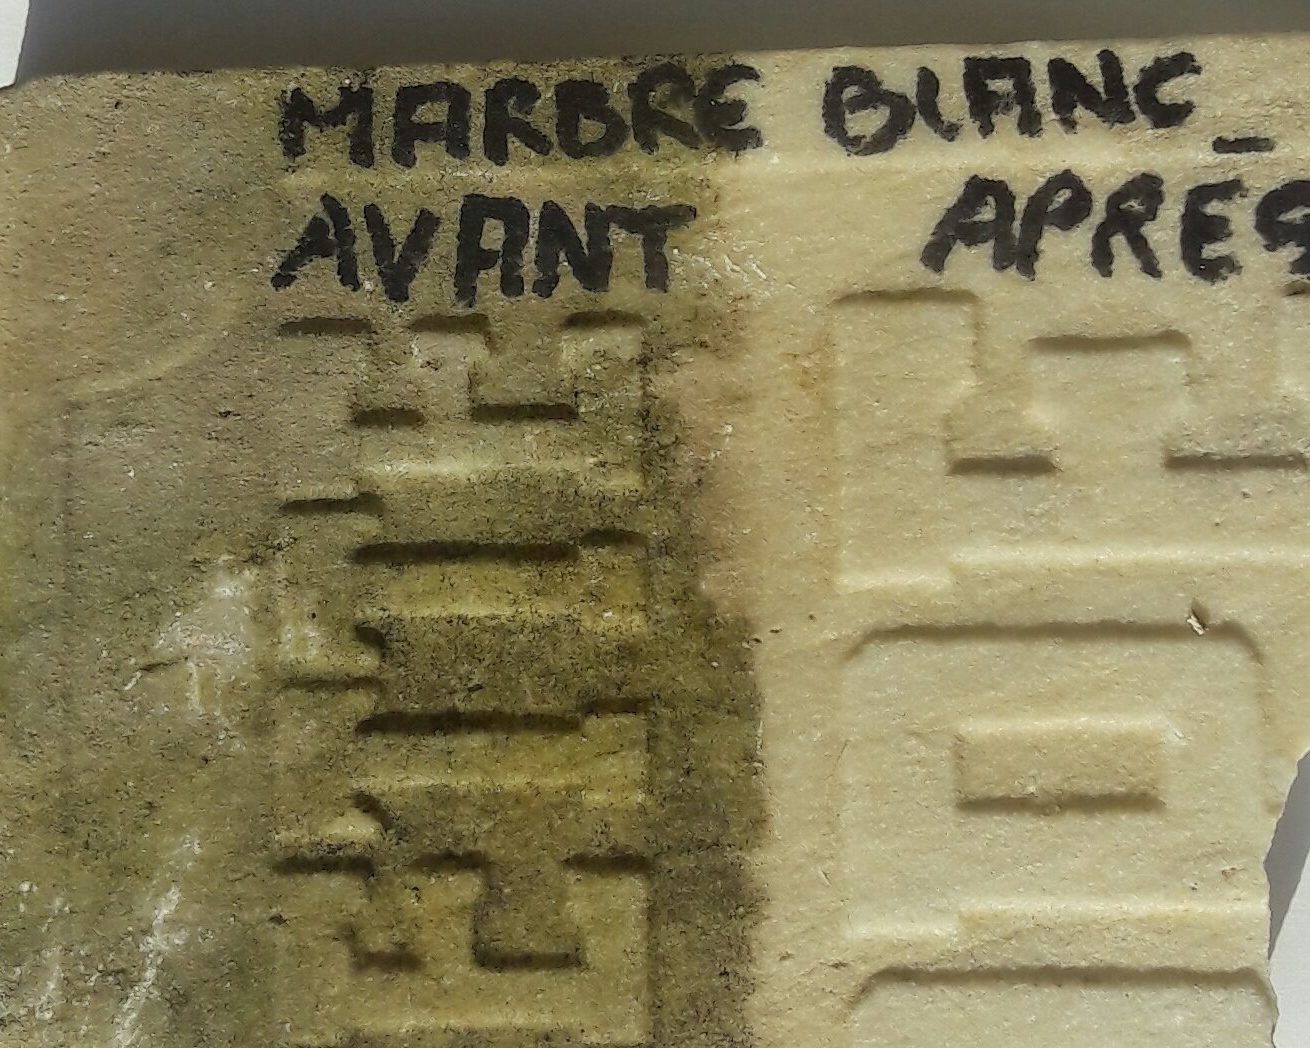 MARBRE BLANC _
AVANT APRES